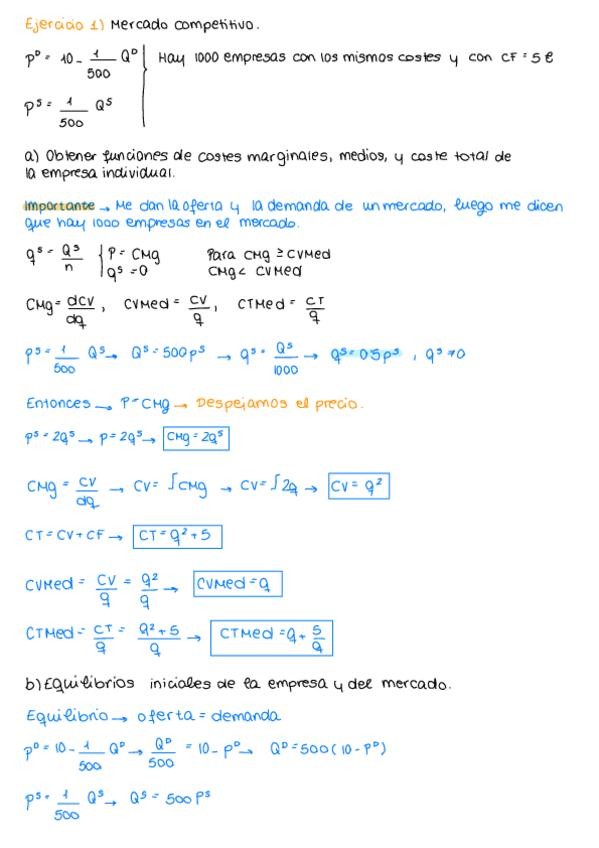 Ejercicio 1) Mercado competitivo.
pᴰ = 10 - 1/500 Qᴰ | Hay 1000 empresas con los mismos costes y con CF = 5€
pˢ = 1/500 Qˢ
a) Obtener funciones de costes marginales, medios, y coste total de
la empresa individual.
Importante → Me dan la oferta y la demanda de un mercado, luego me dicen
que hay 1000 empresas en el mercado.
qˢ = Qˢ/n { P = CMg Para CMg ≥ CVMed
qˢ = 0 CMg < CVMed
CMg = dCV/dq, CVMed = CV/q, CTMed = CT/q
pˢ = 1/500 Qˢ → Qˢ = 500pˢ → qˢ = Qˢ/1000 → qˢ = 0'5pˢ, qˢ ≠ 0
Entonces → P = CMg → Despejamos el precio.
pˢ = 2qˢ → p = 2qˢ → CMg = 2qˢ
CMg = CV/dq → CV = ∫CMg → CV = ∫2q → CV = q²
CT = CV + CF → CT = q² + 5
CVMed = CV/q = q²/q → CVMed = q
CTMed = CT/q = q² + 5/q → CTMed = q + 5/q
b) Equilibrios iniciales de la empresa y del mercado.
Equilibrio → oferta = demanda
pᴰ = 10 - 1/500 Qᴰ → Qᴰ/500 = 10 - pᴰ → Qᴰ = 500(10 - pᴰ)
pˢ = 1/500 Qˢ → Qˢ = 500pˢ